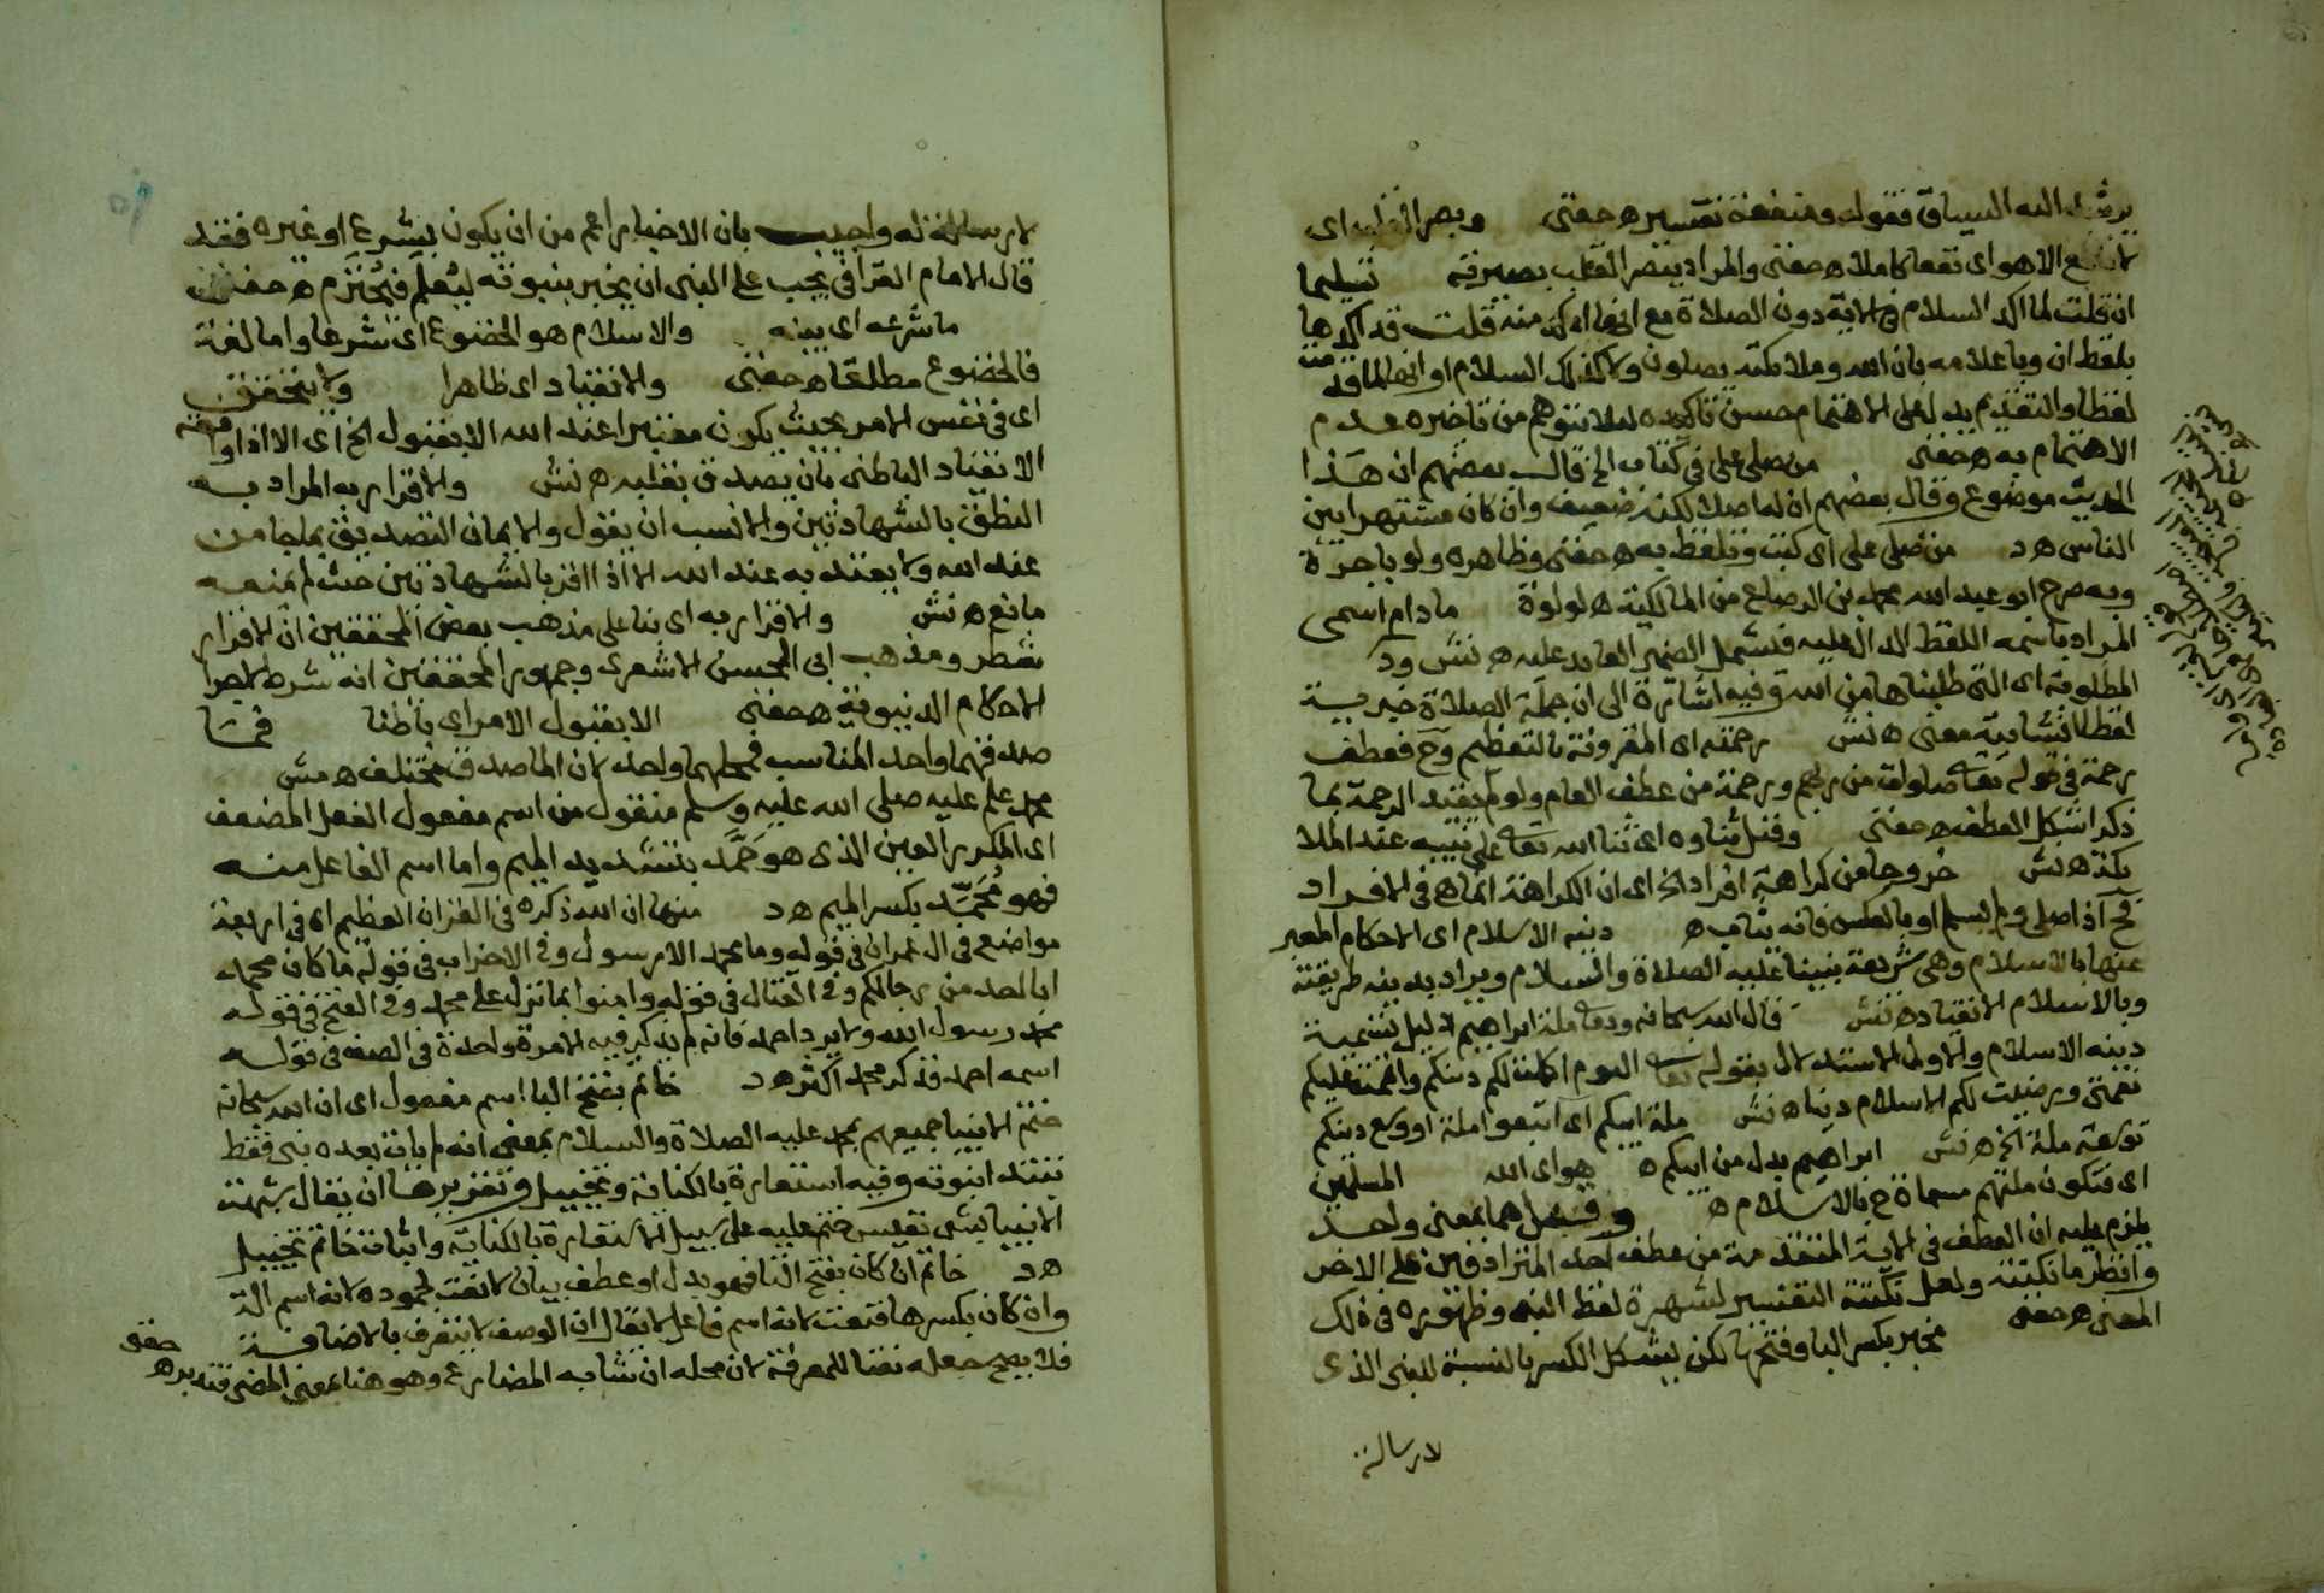 يرشد اليه السياق فقوله ومنفعة تفسير ه حفنى وبصر القلب اى
لانتفع الا هو اى نفعا كاملا ه حفنى والمراد ببصر القلب بصيرته تسليما
ان قلت لم اكد السلام فى الاية دون الصلاة مع انها اوكد منه قلت قد اكدها
بلفظ ان وباعلامه بان الله وملائكته يصلون ولا كذلك السلام او انها لما قدمت
لفظا والتقديم يدل على الاهتمام حسن تاكيده لئلا يتوهم من تاخيره عدم
الاهتمام به ه حفنى من صلى على فى كتاب الخ قال بعضهم ان هذا
الحديث موضوع وقال بعضهم ان له اصلا لكنه ضعيف وان كان مشتهرا بين
الناس ه د من صلى على اى كتب وتلفظ به ه حفنى وظاهره ولو باجرة
وبه صرح ابو عبد الله محمد بن الرصاع من المالكية ه لولوة ما دام اسمى
المراد باسمه اللفظ الدال عليه فيشمل الضمير العايد عليه ه نش ود
المطلوبة اى التى طلبناها من الله وفيه اشارة الى ان جملة الصلاة خبرية
لفظا انشائية معنى ه نش رحمته اى المقرونة بالتعظيم وح فعطف
رحمة فى قوله تعا صلوات من ربهم ورحمة من عطف العام ولو لم يقيد الرحمة بما
ذكر اشكل العطف ه حفنى وقيل ثناوه اى ثنا الله تعا على نبيه عند الملا
يكته ه نش خروجا من كراهة افراد الخ اى ان الكراهة انما هى فى الافراد
فح اذا صلى ولم يسلم او بالعكس فانه يثاب ه دينه الاسلام اى الاحكام المعبر
عنها بالاسلام وهى شريعة نبينا عليه الصلاة والسلام ويراد بدينه طريقته
وبالاسلام الانقياد ه نش قال الله سبحانه وتعا ملة ابراهيم دليل لتسمية
دينه الاسلام والاولى الاستدلال بقوله تعا اليوم اكملت لكم دينكم واتممت عليكم
نعمتى ورضيت لكم الاسلام دينا ه نش ملة ابيكم اى اتبعوا ملة او وسع دينكم
توسعة ملة الخ ه نش ابراهيم بدل من ابيكم ه هو اى الله المسلمين
اى فتكون ملتهم مسماة ح بالاسلام ه وقيل هما بمعنى واحد
يلزم عليه ان العطف فى الاية المتقدمة من عطف احد المترادفين على الاخر
وانظر ما نكتته ولعل نكتة التفسير لشهرة لفظ النبى وظهوره فى ذلك
المعنى ه حفنى مخبر بكسر البا وفتحها لكن يشكل الكسر بالنسبة للنبى الذى
لا رسالة
لا رسالة له واجيب بان الاخبار اعم من ان يكون بشرع او غيره فقد
قال الامام القرافى يجب على النبى ان يخبر بنبوته ليعلم فيحترم ه حفنى
ما شرعه اى بينه والاسلام هو الخضوع اى شرعا واما لغة
فالخضوع مطلقا ه حفنى والانقياد اى ظاهرا ولا يتحقق
اى فى نفس الامر بحيث يكون معتبرا عند الله الا بقبول الخ اى الا اذا وافقه
الانقياد الباطنى بان يصدق بقلبه ه نش والاقرار به المراد به
النطق بالشهادتين والانسب ان يقول والايمان التصديق بما جا من
عند الله ولا يعتد به عند الله الا اذا اقر بالشهادتين حيث لم يمنعه
مانع ه نش والاقرار به اى بنا على مذهب بعض المحققين ان الاقرار
شطر ومذهب ابى الحسن الاشعرى وجمهور المحققين انه شرط لاجرا
الاحكام الدنيوية ه حفنى الا بقبول الامر اى باطنا فما
صدقهما واحد المناسب فمحلهما واحد لان الماصدق مختلف ه مش
محمد علم عليه صلى الله عليه وسلم منقول من اسم مفعول الفعل المضعف
اى المكرر العين الذى هو حَمَّد بتشديد الميم واما اسم الفاعل منه
فهو مُحَمِّد بكسر الميم ه د منها ان الله ذكره فى القران العظيم اى فى اربعة
مواضع فى ال عمران فى قوله وما محمد الا رسول وفى الاحزاب فى قوله ما كان محمد
ابا احد من رجالكم وفى القتال فى قوله وامنوا بما نزل على محمد وفى الفتح فى قوله
محمد رسول الله ولا يرد احمد فانه لم يذكر فيه الا مرة واحدة فى الصف فى قوله
اسمه احمد فذكر محمد اكثر ه د خاتم بفتح التا اسم مفعول اى ان الله سبحانه
ختم الانبيا جميعهم بمحمد عليه الصلاة والسلام بمعنى انه لم يات بعده نبى فقط
تبتدا نبوته وفيه استعارة بالكناية وتخييل وتقريرها ان يقال شبهت
الانبيا بشى نفيس ختم عليه على سبيل الاستعارة بالكناية واثبات خاتم تخييل
ه د خاتم ان كان بفتح التا فهو بدل او عطف بيان لا نعت لجموده لانه اسم الة
وان كان بكسرها فنعت لانه اسم فاعل لا يقال ان الوصف لا يتعرف بالاضافة
فلا يصح جعله نعتا للمعرفة لان محله ان شابه المضارع وهو هنا بمعنى المضى فتدبر ه حفنى